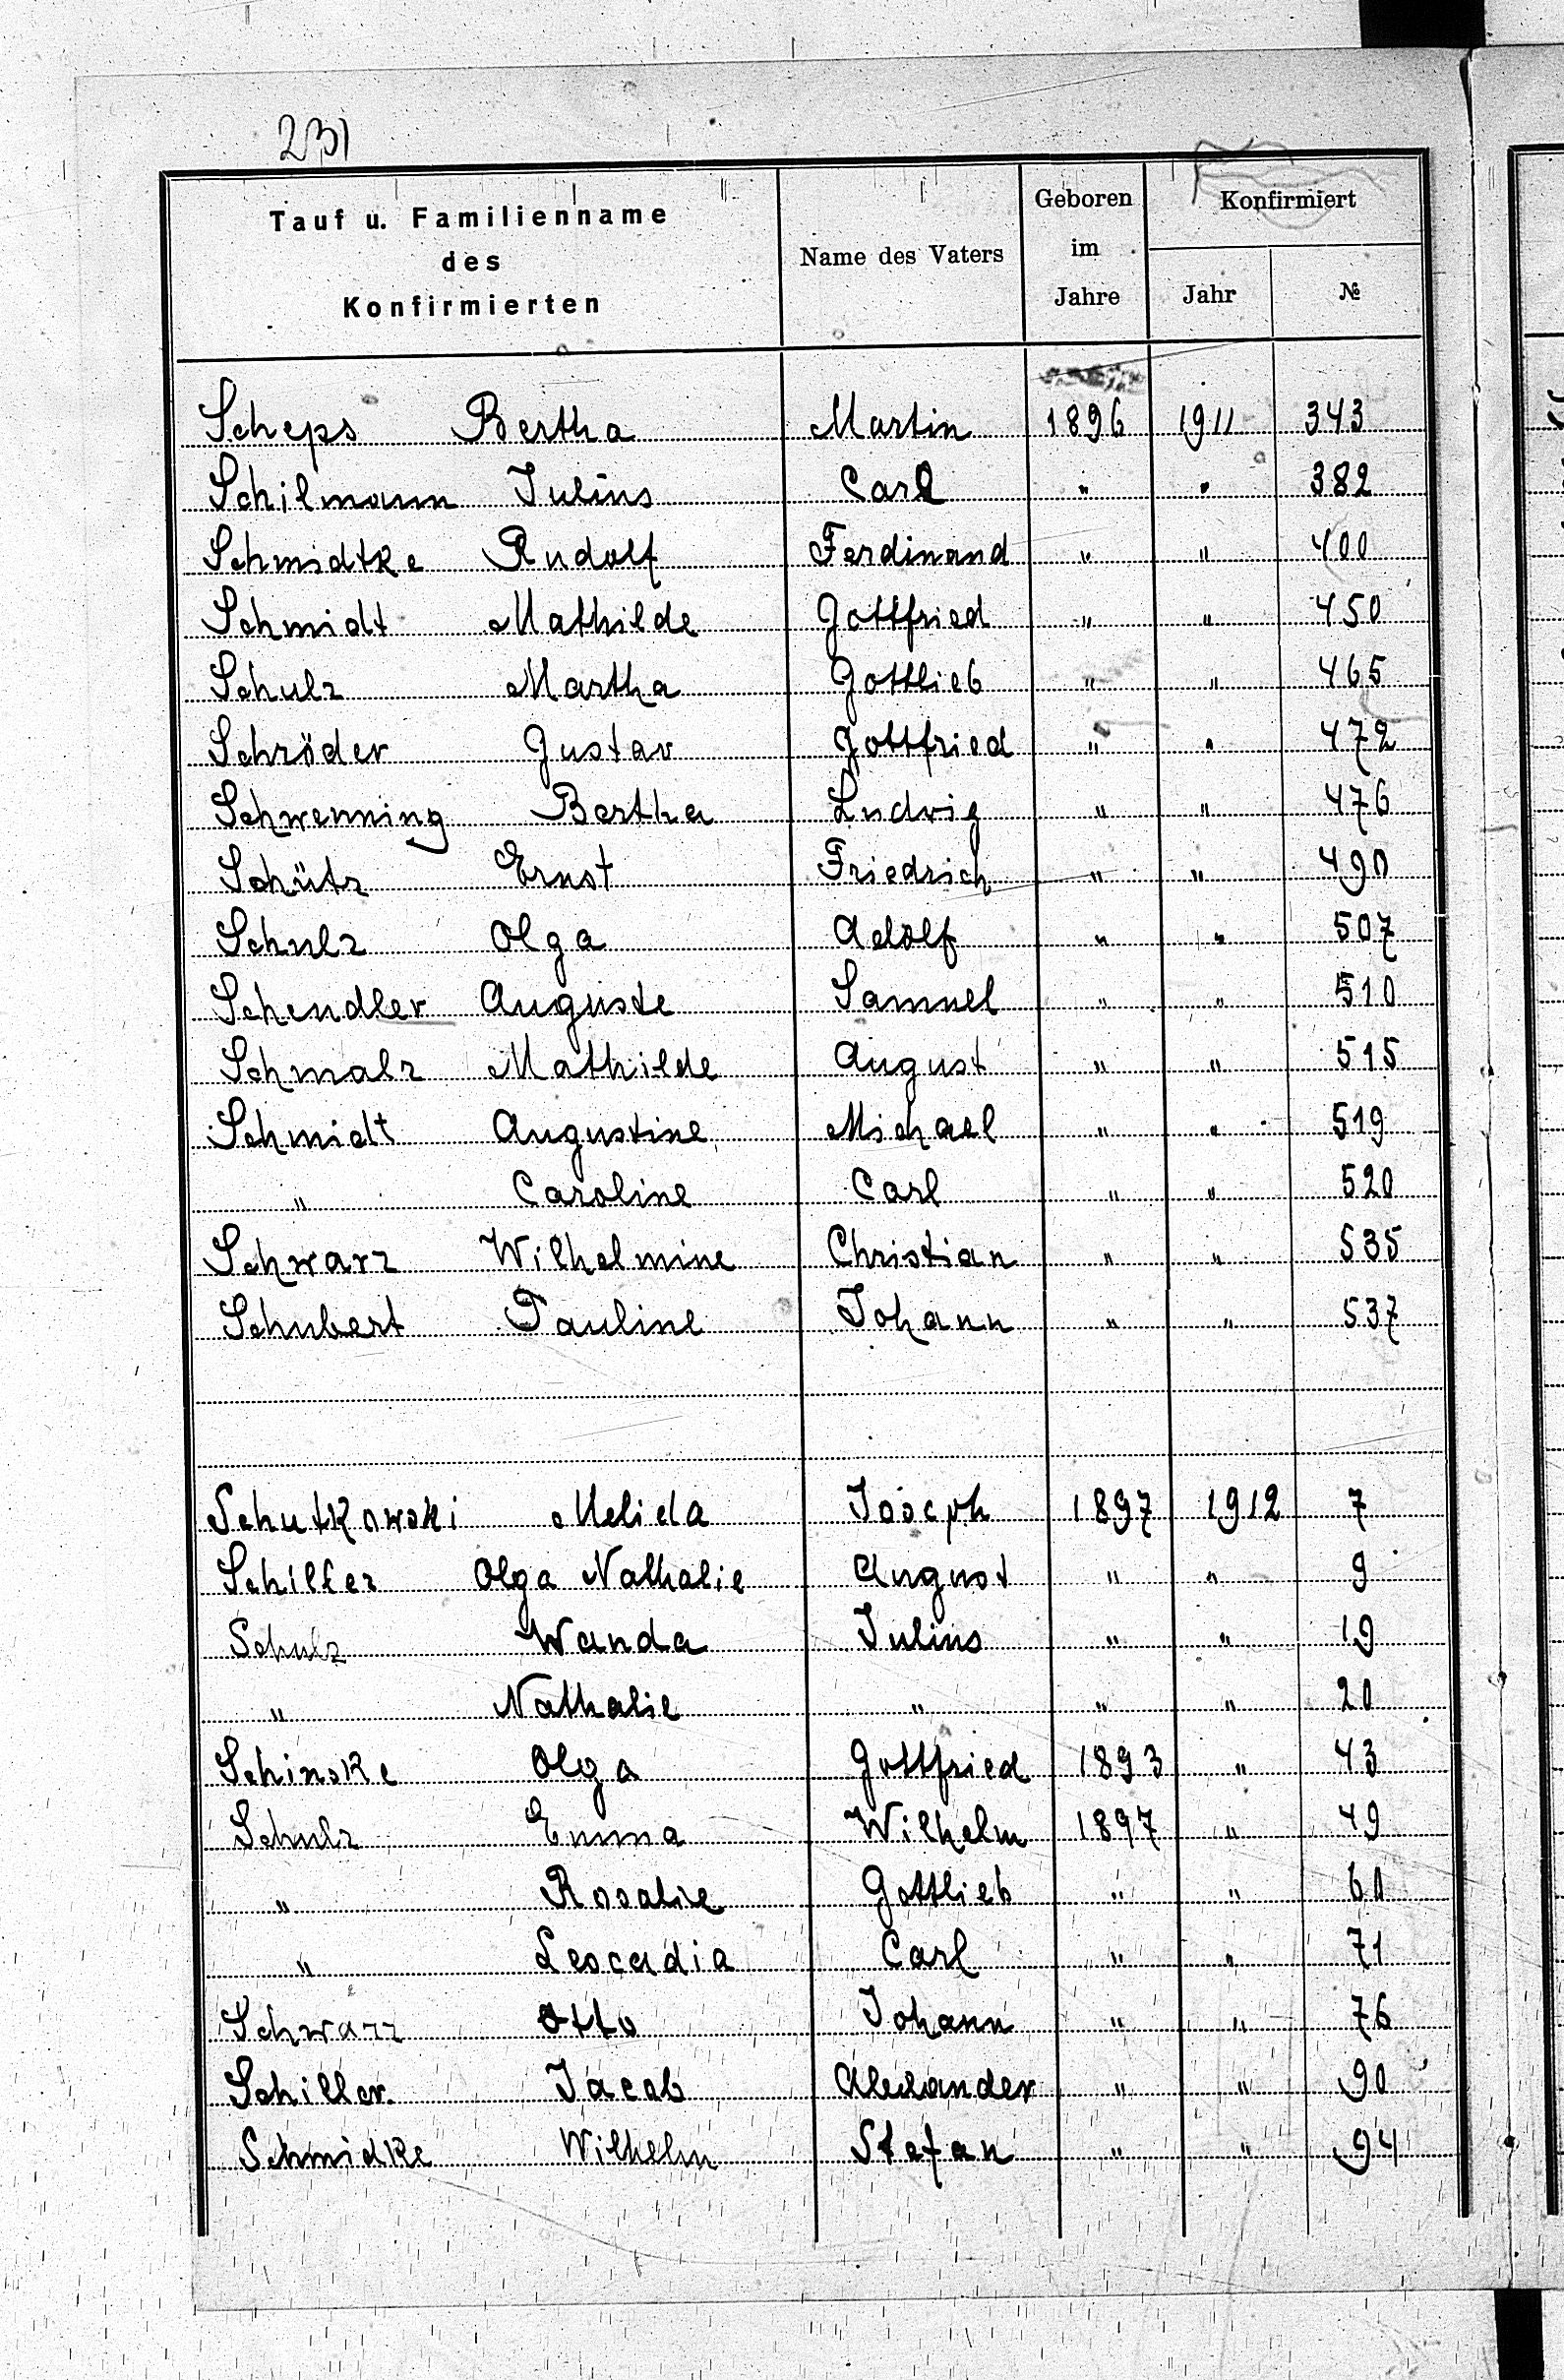 231
Tauf u. Familienname des Konfirmierten Name des Vaters Geboren im Jahre Konfirmiert Jahr №
Scheps Bertha Martin 1896 1911 343
Schilmann Julius Carl " " 382
Schmidtke Rudolf Ferdinand " " 400
Schmidt Mathilde Gottfried " " 450
Schulz Martha Gottlieb " " 465
Schröder Gustav Gottfried " " 472
Schwenning Bertha Ludwig " " 476
Schütz Ernst Friedrich " " 490
Schulz Olga Adolf " " 507
Schendler Auguste Samuel " " 510
Schmalz Mathilde August " " 515
Schmidt Augustine Michael " " 519
" Caroline Carl " " 520
Schwarz Wilhelmine Christian " " 535
Schubert Pauline Johann " " 537
Schutkowski Melida Joseph 1897 1912 7
Schiller Olga Nathalie August " " 9
Schulz Wanda Julius " " 19
" Nathalie " " " 20
Schinske Olga Gottfried 1893 " 43
Schulz Emma Wilhelm 1897 " 49
" Rosalie Gottlieb " " 60
" Leocadia Carl " " 71
Schwarz Otto Johann " " 76
Schiller Jacob Alexander " " 90
Schmidke Wilhelm Stefan " " 94